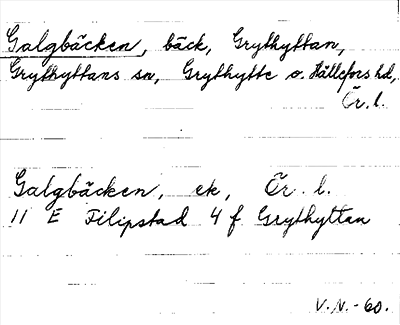 Galgbäcken, bäck, Grythyttan,
Grythyttans sn, Grythytte o. Hällefors hd,
Ör. l.
Galgbäcken, ek, Ör. l.
11 E Filipstad 4 f Grythyttan
V.N.-60.